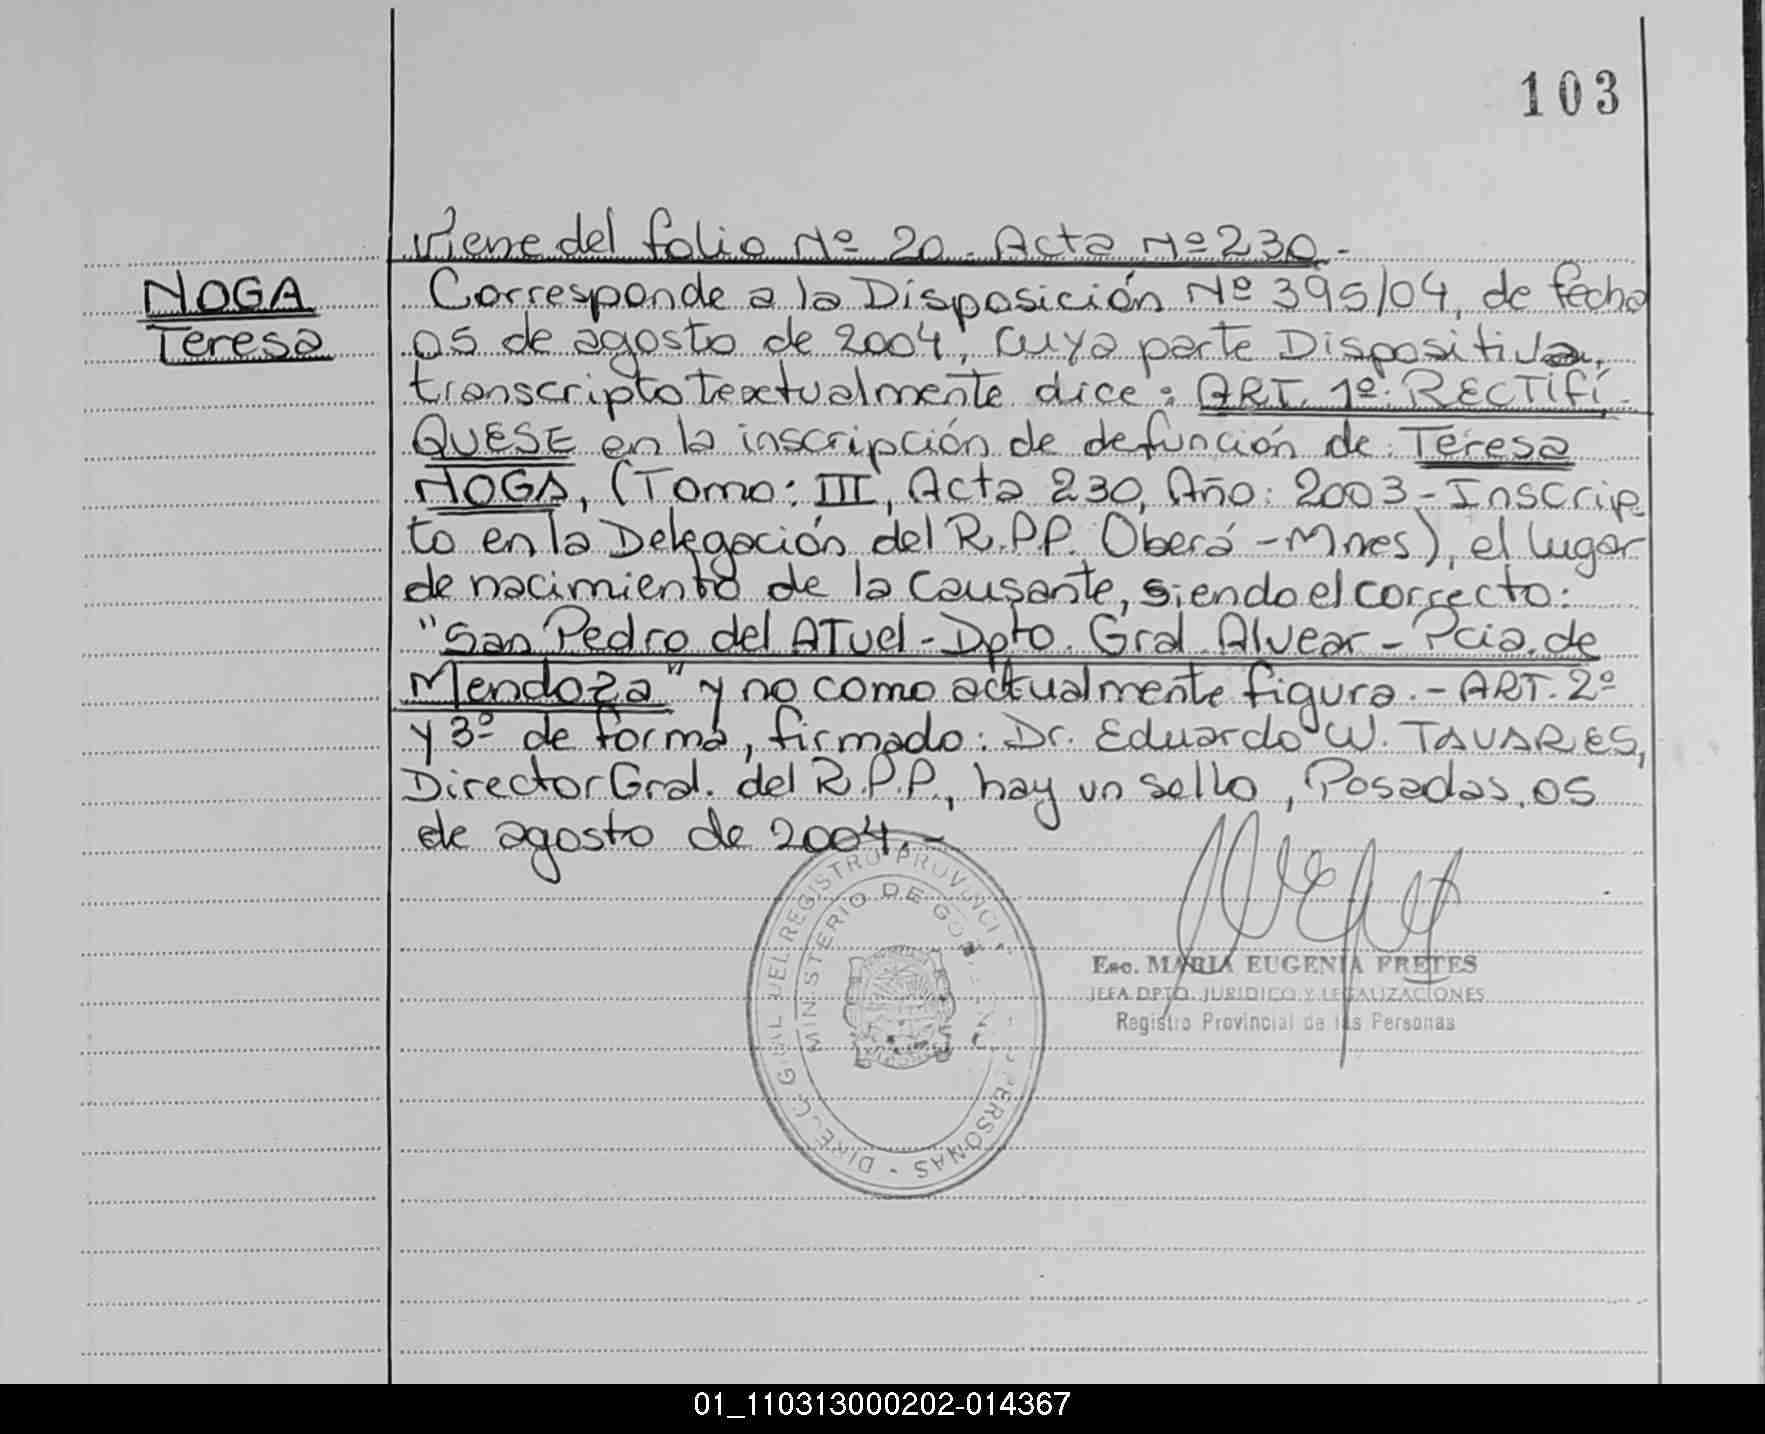 103
Viene del folio Nº 20. Acta Nº 230.-
NOGA
Teresa
Corresponde a la Disposición Nº 395/04, de fecha
05 de agosto de 2004, cuya parte Dispositiva,
transcripto textualmente dice: ART. 1º: RECTIFI-
QUESE en la inscripción de defunción de: Teresa
NOGA, (Tomo: III, Acta 230, Año: 2003 - Inscrip-
to en la Delegación del R.P.P. Oberá - Mnes), el lugar
de nacimiento de la causante, siendo el correcto:
"San Pedro del ATuel - Dpto. Gral. Alvear - Pcia. de
Mendoza" y no como actualmente figura.- ART. 2º
y 3º de forma, firmado: Dr. Eduardo W. TAVARES,
Director Gral. del R.P.P., hay un sello, Posadas, 05
de agosto de 2004.-
REGISTRO PROVINCI
MINISTERIO DE
PERSONAS - DIREC. GRAL DEL
Esc. MARIA EUGENIA FRETES
JEFA DPTO. JURIDICO Y LEGALIZACIONES
Registro Provincial de las Personas
01_110313000202-014367